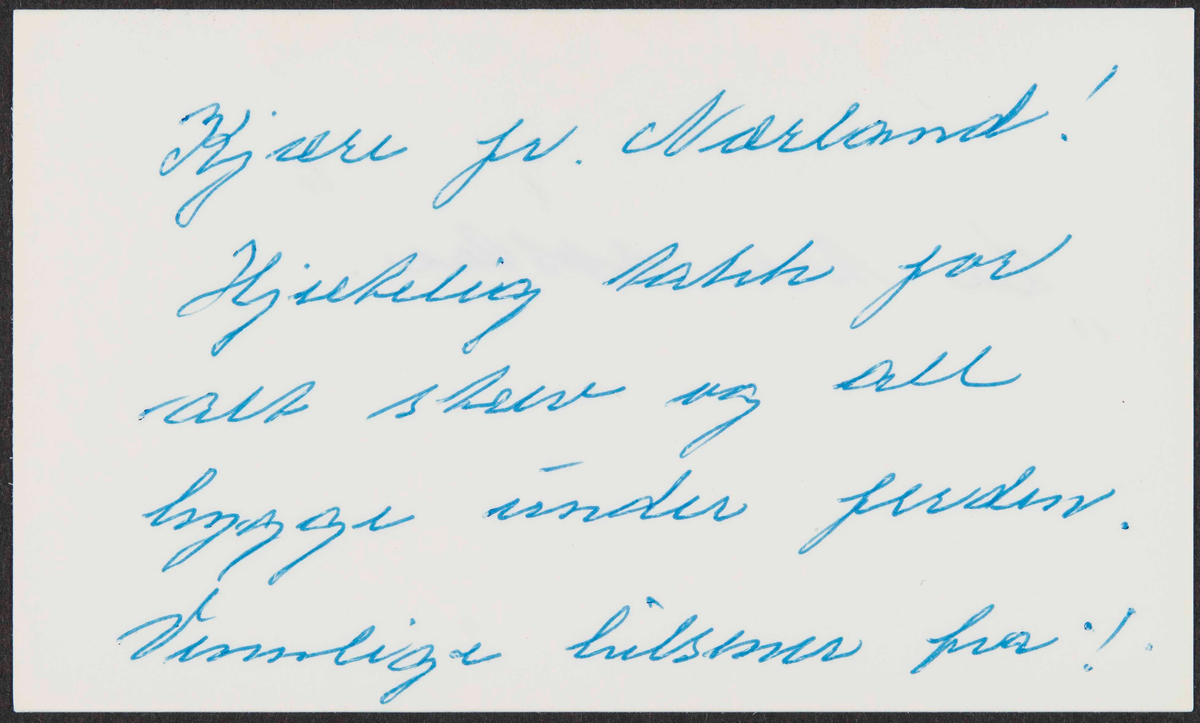 Kjære fr. Nærland!
Hjertelig takk for
alt strev og all
hygge under ferden.
Vennlige hilsener fra:!